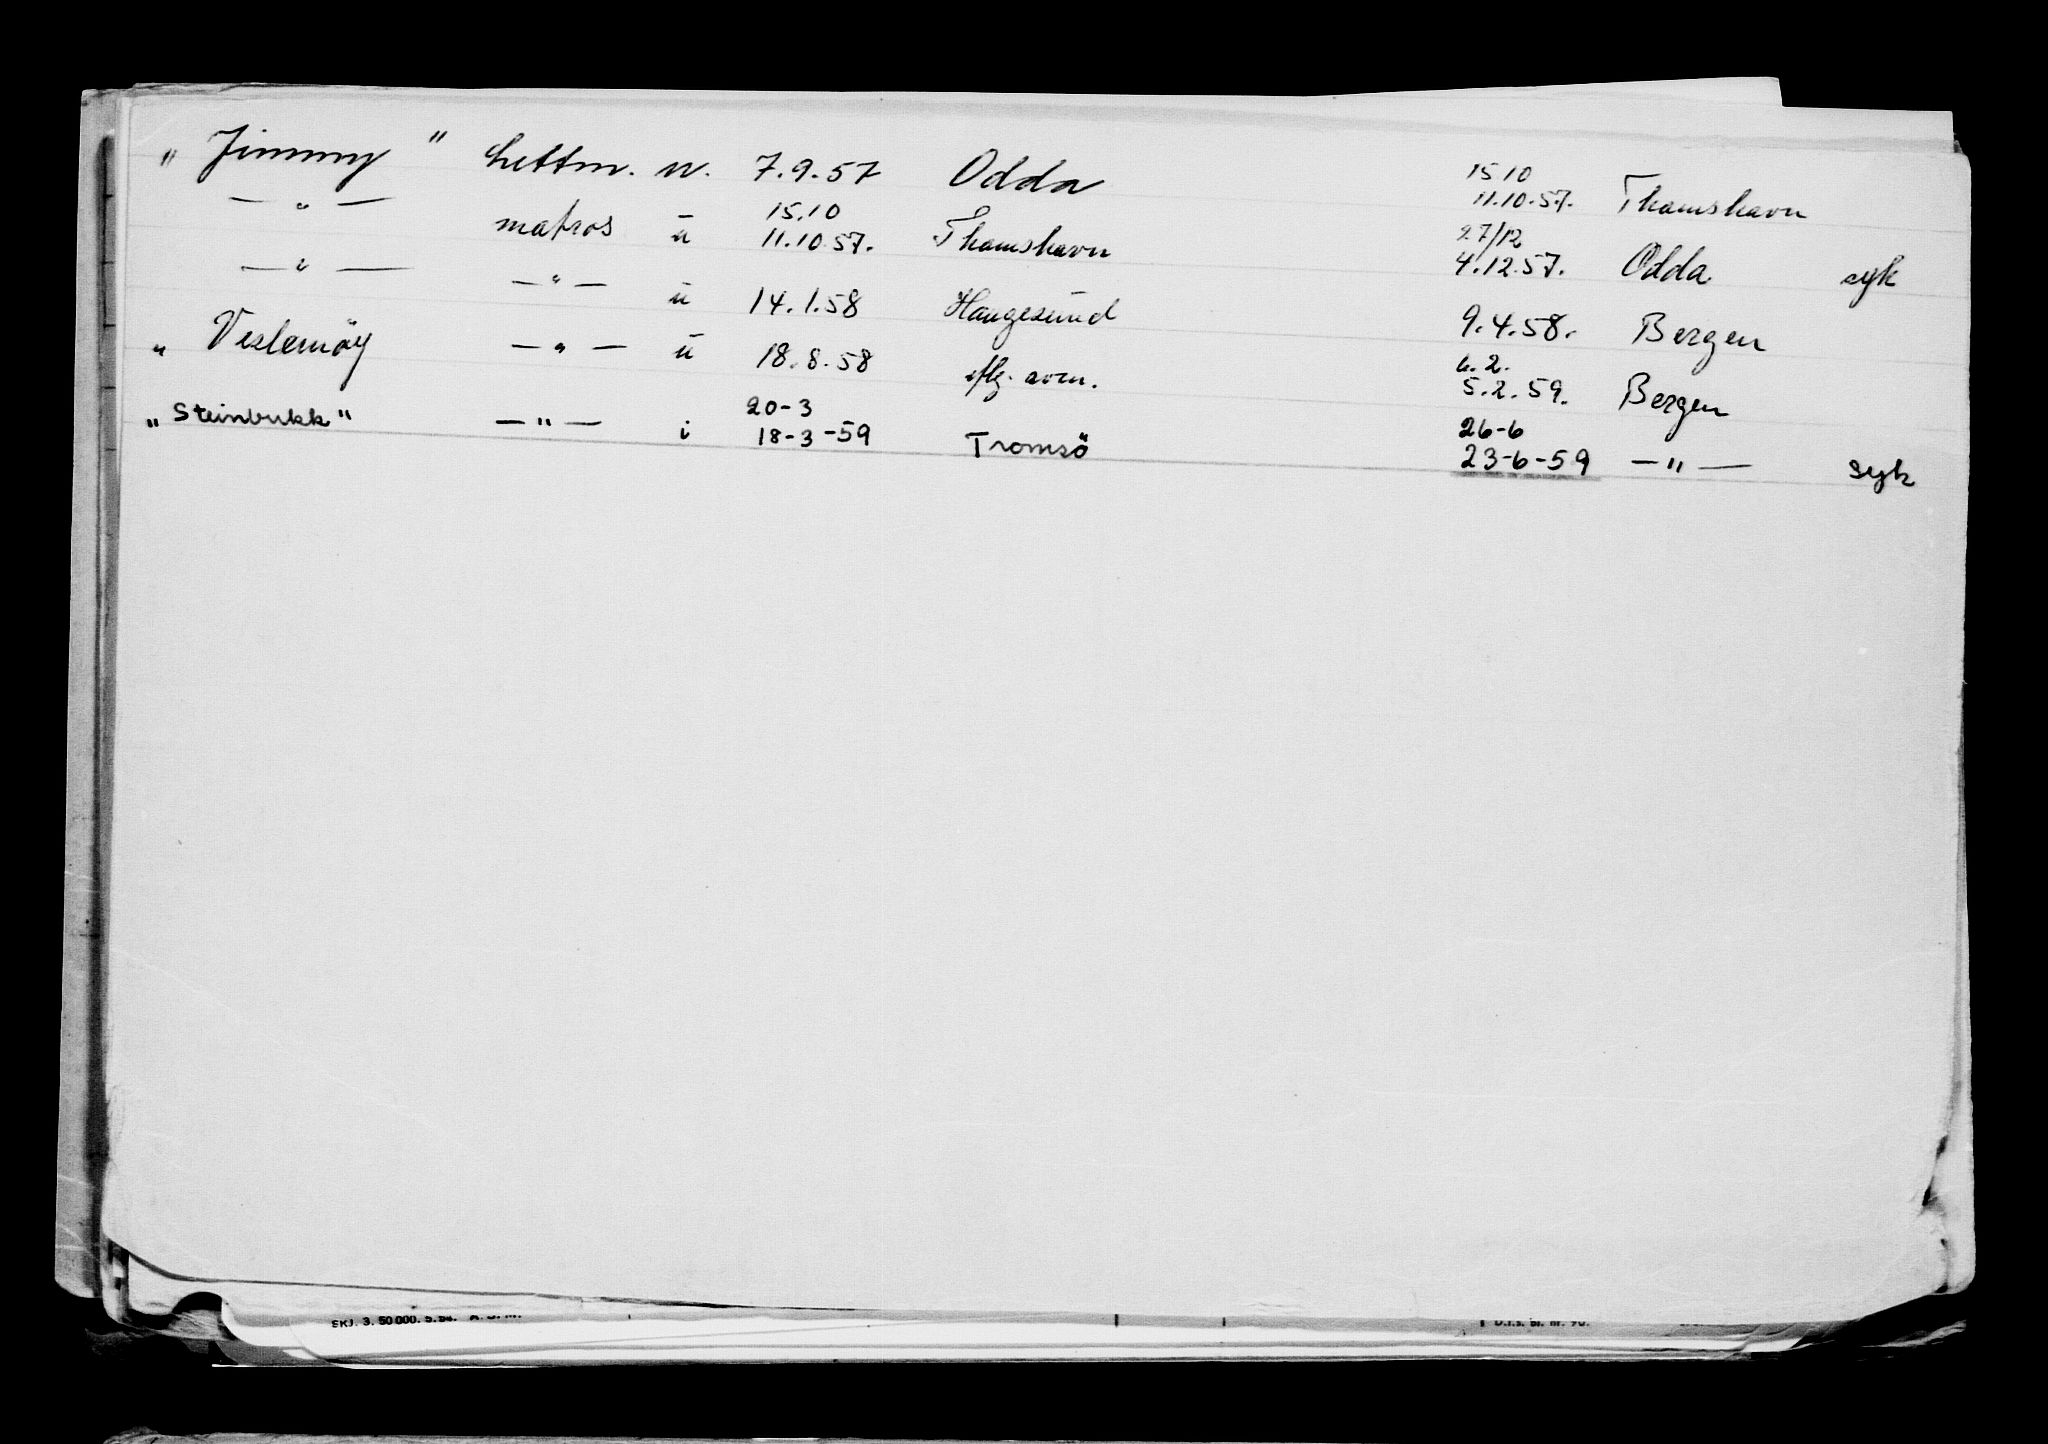 " Jimmy " Lettm. u. 7.9.57 Odda 15.10 11.10.57. Thamshavn
— " — matros u 15.10 11.10.57. Thamshavn 27/12 4.12.57. Odda syk
— " — — " — u 14.1.58 Haugesund 9.4.58. Bergen
" Veslemöy — " — u 18.8.58 6.2. 5.2.59. Bergen
" Steinbukk" — " — i 20-3 18-3-59 Tromsö 26-6 23-6-59 — " — syk
SKJ. 3. 50 000. 5.54. A. S. M.
D.i.s. bl. nr. 90.